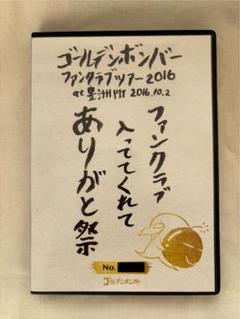 ゴールデンボンバー
ファンクラブツアー2016
at 豊洲PIT 2016.10.2
ファンクラブ
入っててくれて
ありがと祭
No.
ゴールデンボンバー